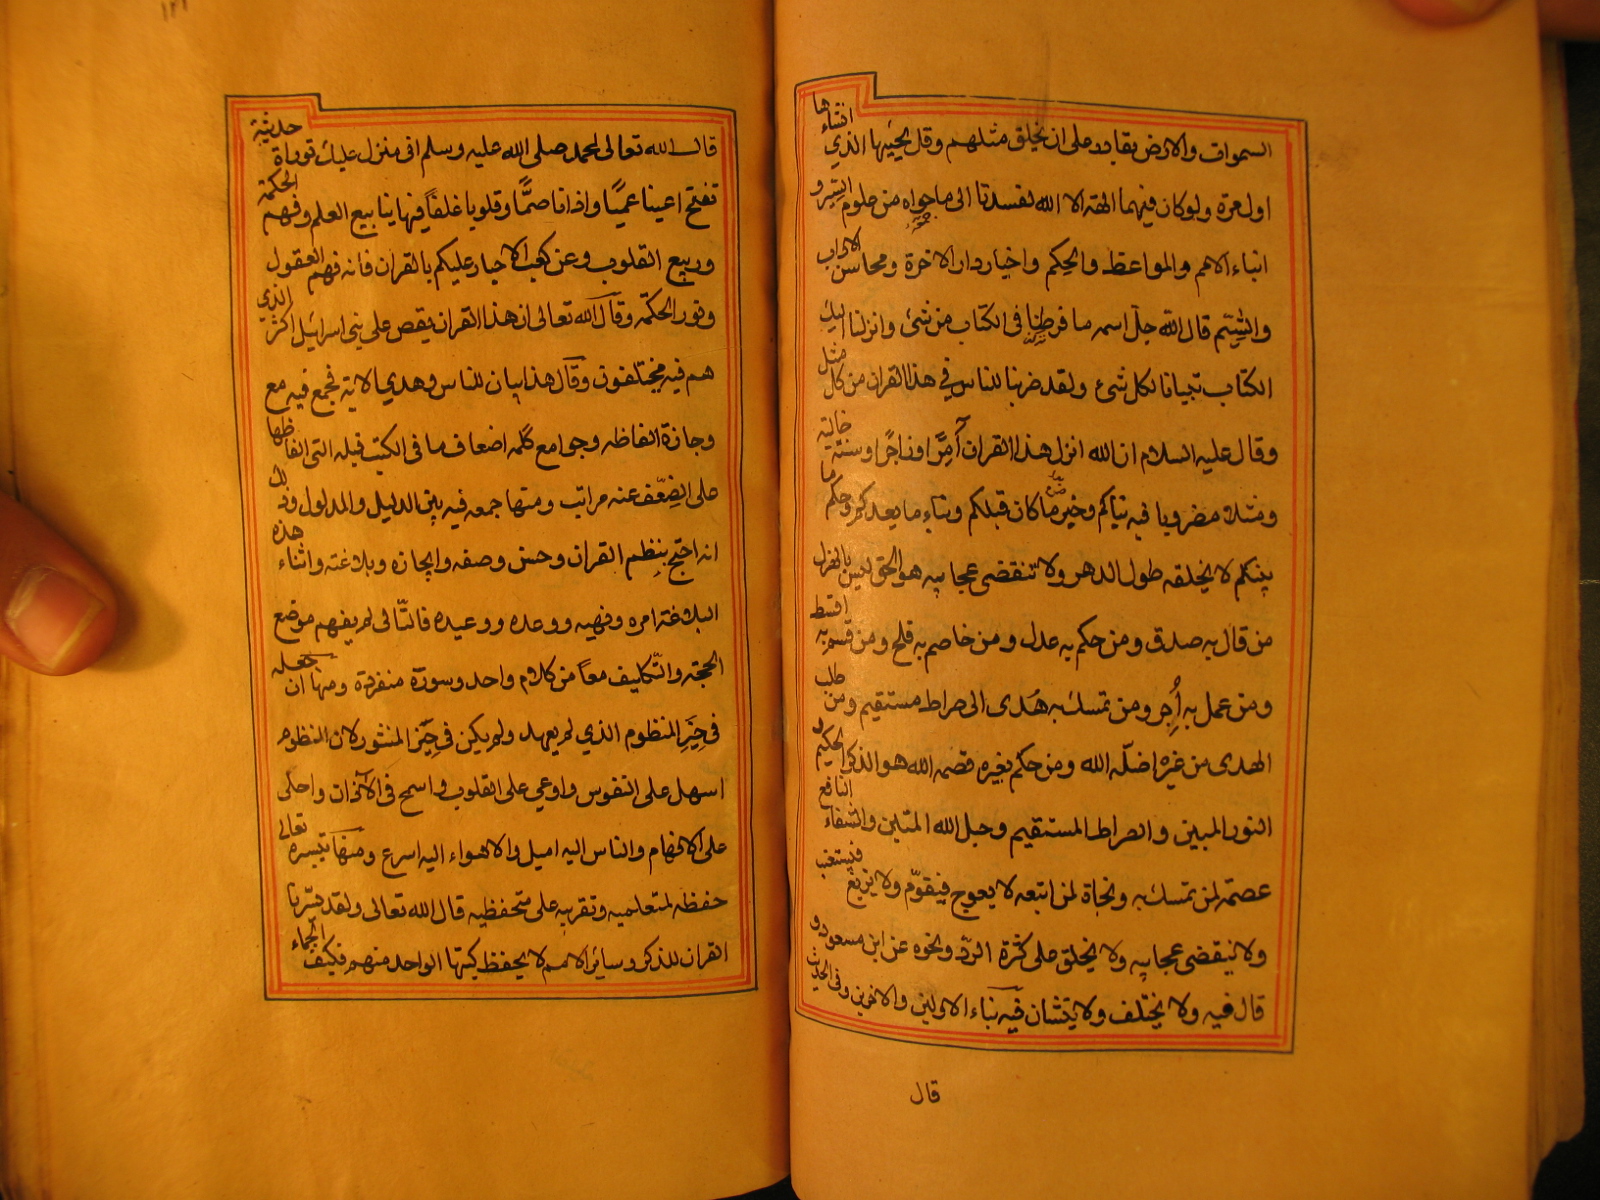 السموات والارض بقادر على ان يخلق مثلهم وقل يحييها الذي انشاءها
اول مرة ولو كان فيهما الهة الا الله لفسدتا الى ما حواه من علوم السير و
انباء الامم والمواعظ والحكم واخبار دار الاخرة ومحاسن الاداب
والشيم قال الله جل اسمه ما فرطنا فى الكتاب من شئ وانزلنا اليك
الكتاب تبيانا لكل شئ ولقد ضربنا للناس في هذا القران من كل مثل
وقال عليه السلام ان الله انزل هذا القران آمرًا وزاجرًا وسنة خالية
ومثلا مضروبا فيه نباكم وخبر ما كان قبلكم ونباء ما بعدكم وحكم ما
بينكم لا يخلقه طول الدهر ولا تنقضى عجايبه هو الحق ليس بالهزل
من قال به صدق ومن حكم به عدل ومن خاصم به فلح ومن قسم به اقسط
ومن عمل به أُجر ومن تمسك به هُدى الى صراط مستقيم ومن طلب
الهدى من غيره اضلّه الله ومن حكم بغيره قصمه الله هو الذكر الحكيم و
النور المبين والصراط المستقيم وحبل الله المتين والشفاء النافع
عصمة لمن تمسك به ونجاة لمن اتبعه لا يعوج فيقوّم ولا يزيغ فيستعتب
ولا تنقضى عجايبه ولا يخلق على كثرة الردّ ونحوه عن ابن مسعود و
قال فيه ولا يختلف ولا يتشان فيه نباء الاولين والاخرين وفى الحديث
قال
قال الله تعالى لمحمد صلى الله عليه وسلم انى منزل عليك توراة حديثة
تفتح اعينا عميًا واذانا صمًّا وقلوبا غلفاً فيها ينابيع العلم وفهم الحكمة
وربيع القلوب وعن كعب الاحبار عليكم بالقران فانه فهم العقول
ونور الحكمة وقال الله تعالى ان هذا القران يقص على بنى اسرائيل اكثر الذي
هم فيه يختلفون وقال هذا بيان للناس وهدي الاية فجمع فيه مع
وجازة الفاظه وجوامع كلمه اضعاف ما فى الكتب قبله التى الفاظها
على الضعف عنه مراتب ومنها جمعه فيه بين الدليل والمدلول وذلك
انه احتج بنظم القران وحسن وصفه وايجازه وبلاغته واثناء هذه
البلاغة امره ونهيه ووعده ووعيده فالتالى له يفهم موضع
الحجة والتكليف معاً من كلام واحد وسورة منفردة ومنها ان جعله
فى حيّز المنظوم الذي لم يعهد ولم يكن فى حيّز المنثور لان النظوم
اسهل على النفوس واوعي على القلوب واسمح فى الآذان واحلى
على الافهام والناس اليه اميل والاهواء اليه اسرع ومنها تيسره تعالى
حفظه لمتعلميه وتقريبه على متحفظيه قال الله تعالى ولقد يسّرنا
القران للذكر وسائر الامم لا يحفظ كتبها الواحد منهم فكيف الجماء